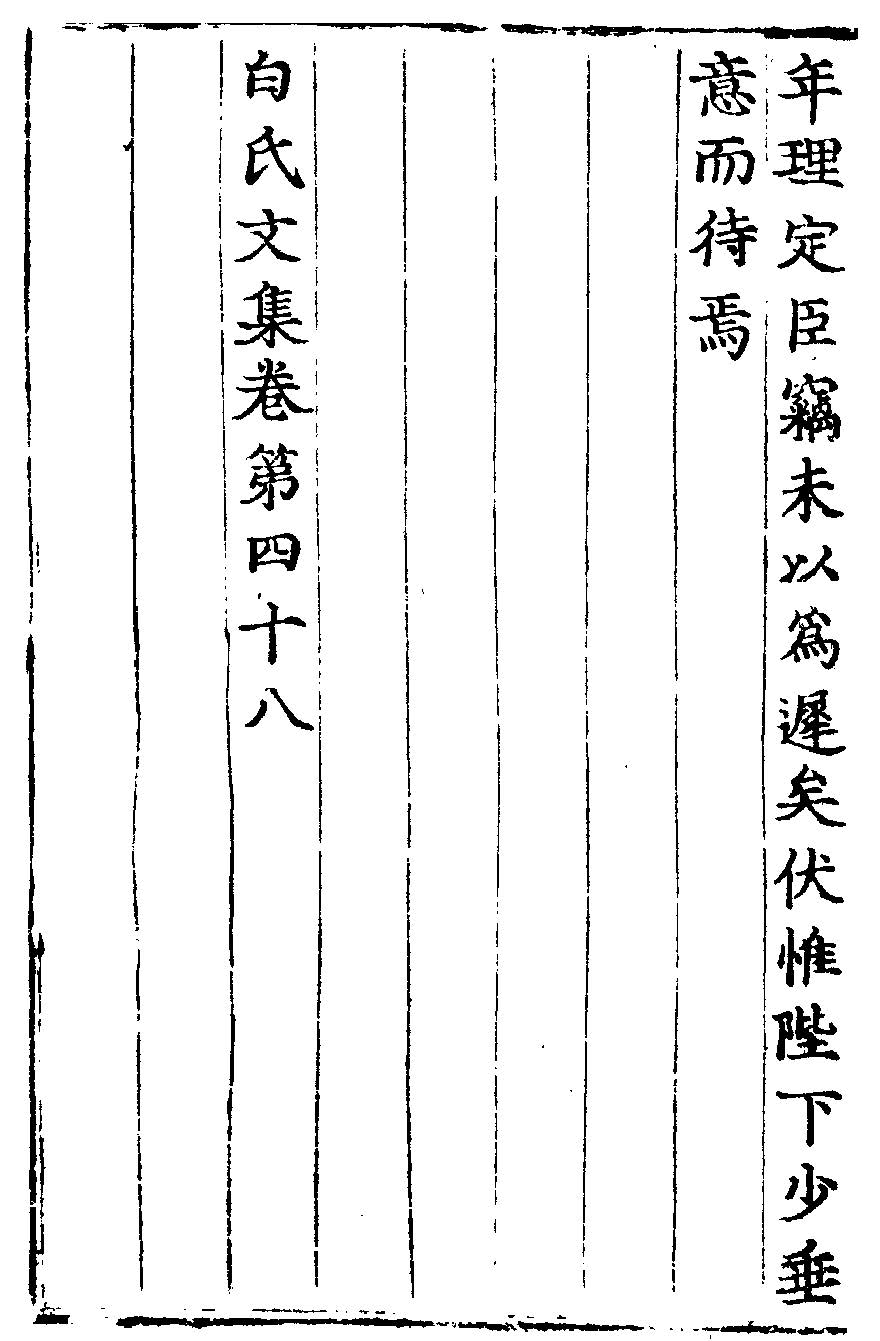 年理定臣竊未以爲遲矣伏惟陛下少垂
意而待焉
白氏文集卷第四十八